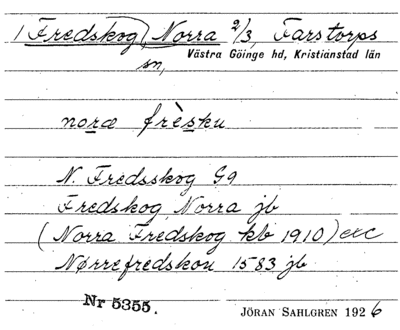 1 Fredskog, Norra 2/3, Farstorps
sn, Västra Göinge hd, Kristianstad län
noræ frèsku
N. Fredsskog G9
Fredskog, Norra jb
(Norra Fredskog kb 1910) etc
Nørrefredskou 1583 jb
Nr 5355.
JÖRAN SAHLGREN 1926